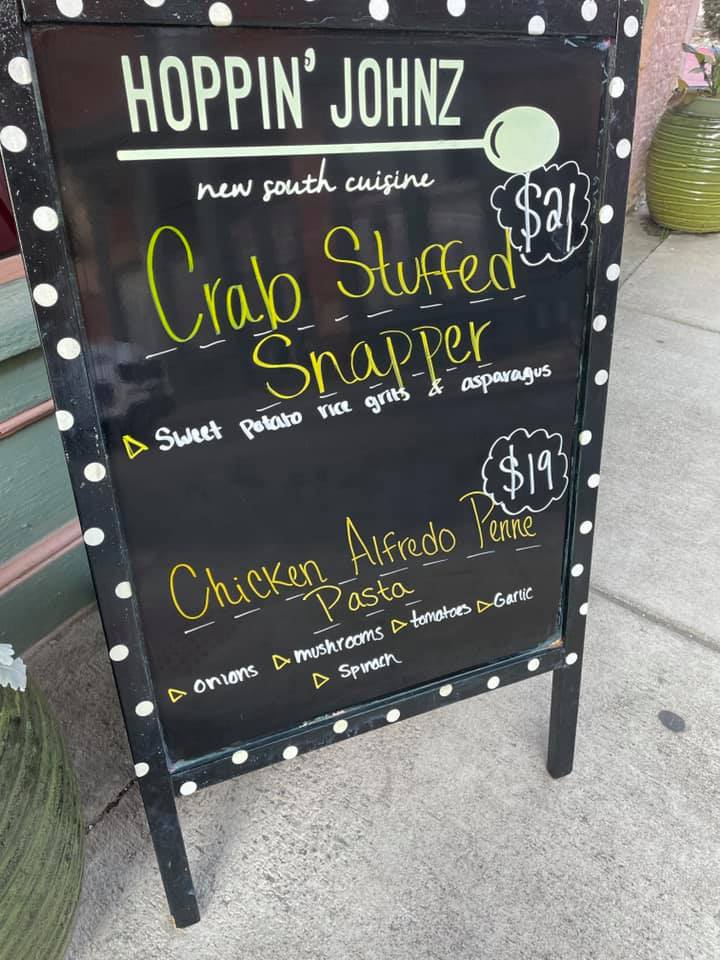 HOPPIN' JOHNZ
new south cuisine
$21
Crab Stuffed
Snapper
Sweet Potato rice grits & asparagus
$19
Chicken Alfredo Penne
Pasta
onions mushrooms tomatoes Garlic
Spinach